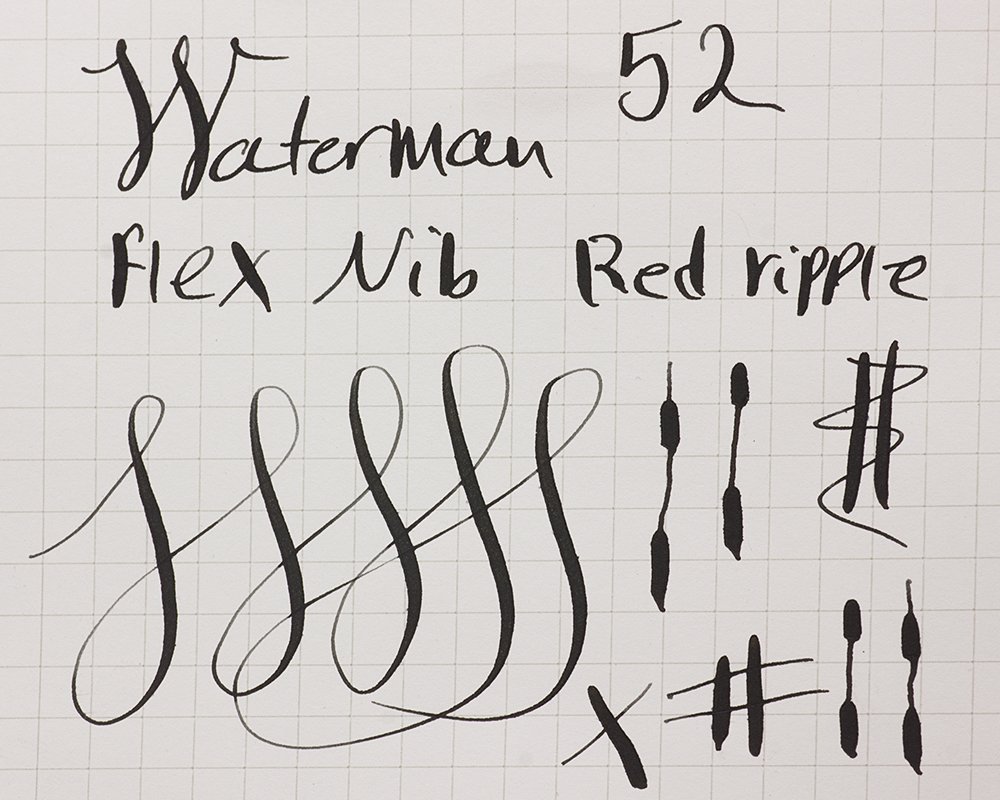 Waterman 52
Flex Nib Red ripple
x #